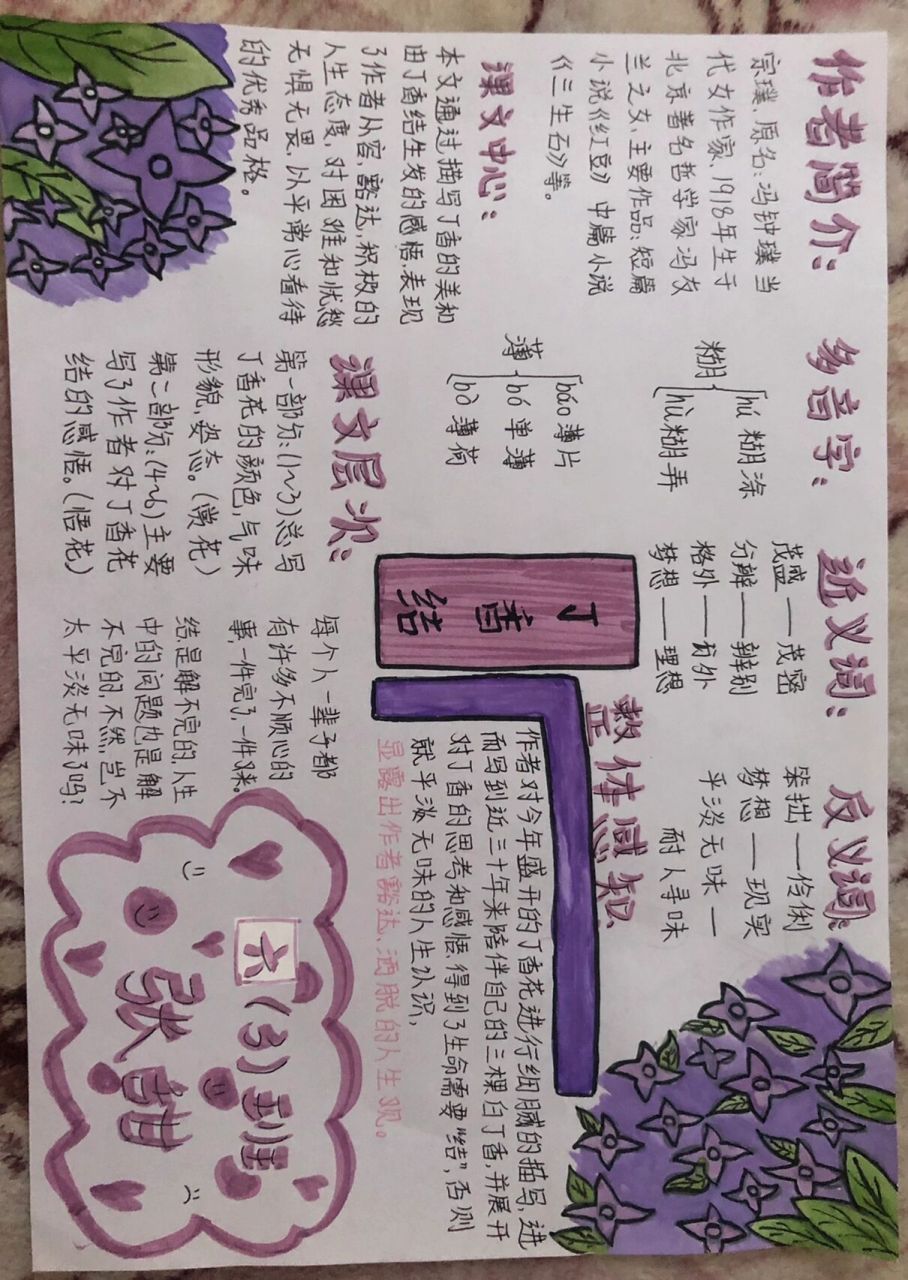 作者简介:
宗璞,原名:冯钟璞当
代女作家,1918年生于
北京著名哲学家冯友
兰之女,主要作品:短篇
小说《红豆》中篇小说
《三生石》等。
课文中心:
本文通过描写丁香的美和
由丁香结生发的感悟,表现
了作者从容,豁达,积极的
人生态度,对困难和忧愁
无惧无畏,以平常心看待
的优秀品格。
多音字:
糊
hú 糊涂
hù 糊弄
薄
báo 薄片
bó 单薄
bò 薄荷
课文层次:
第一部分:(1~3)总写
丁香花的颜色,气味
形貌,姿态。(赏花)
第二部分:(4~6)主要
写了作者对丁香花
结的感悟。(悟花)
近义词:
茂盛——茂密
分辨——辨别
格外——窗外
梦想——理想
反义词:
笨拙——伶俐
梦想——现实
平淡无味——
耐人寻味
丁香结
整体感知
作者对今年盛开的丁香花进行细腻的描写,进
而写到近三十年来陪伴自己的三棵白丁香,并展开
对丁香的思考和感悟,得到了生命需要“结”,否则
就平淡无味的人生认识,
显露出作者豁达、洒脱的人生观。
每个人一辈子都
有许多不顺心的
事,一件完了,一件又来。
结是解不完的,人生
中的问题也是解
不完的,不然,岂不
太平淡无味了吗?
六(3)班
张甜